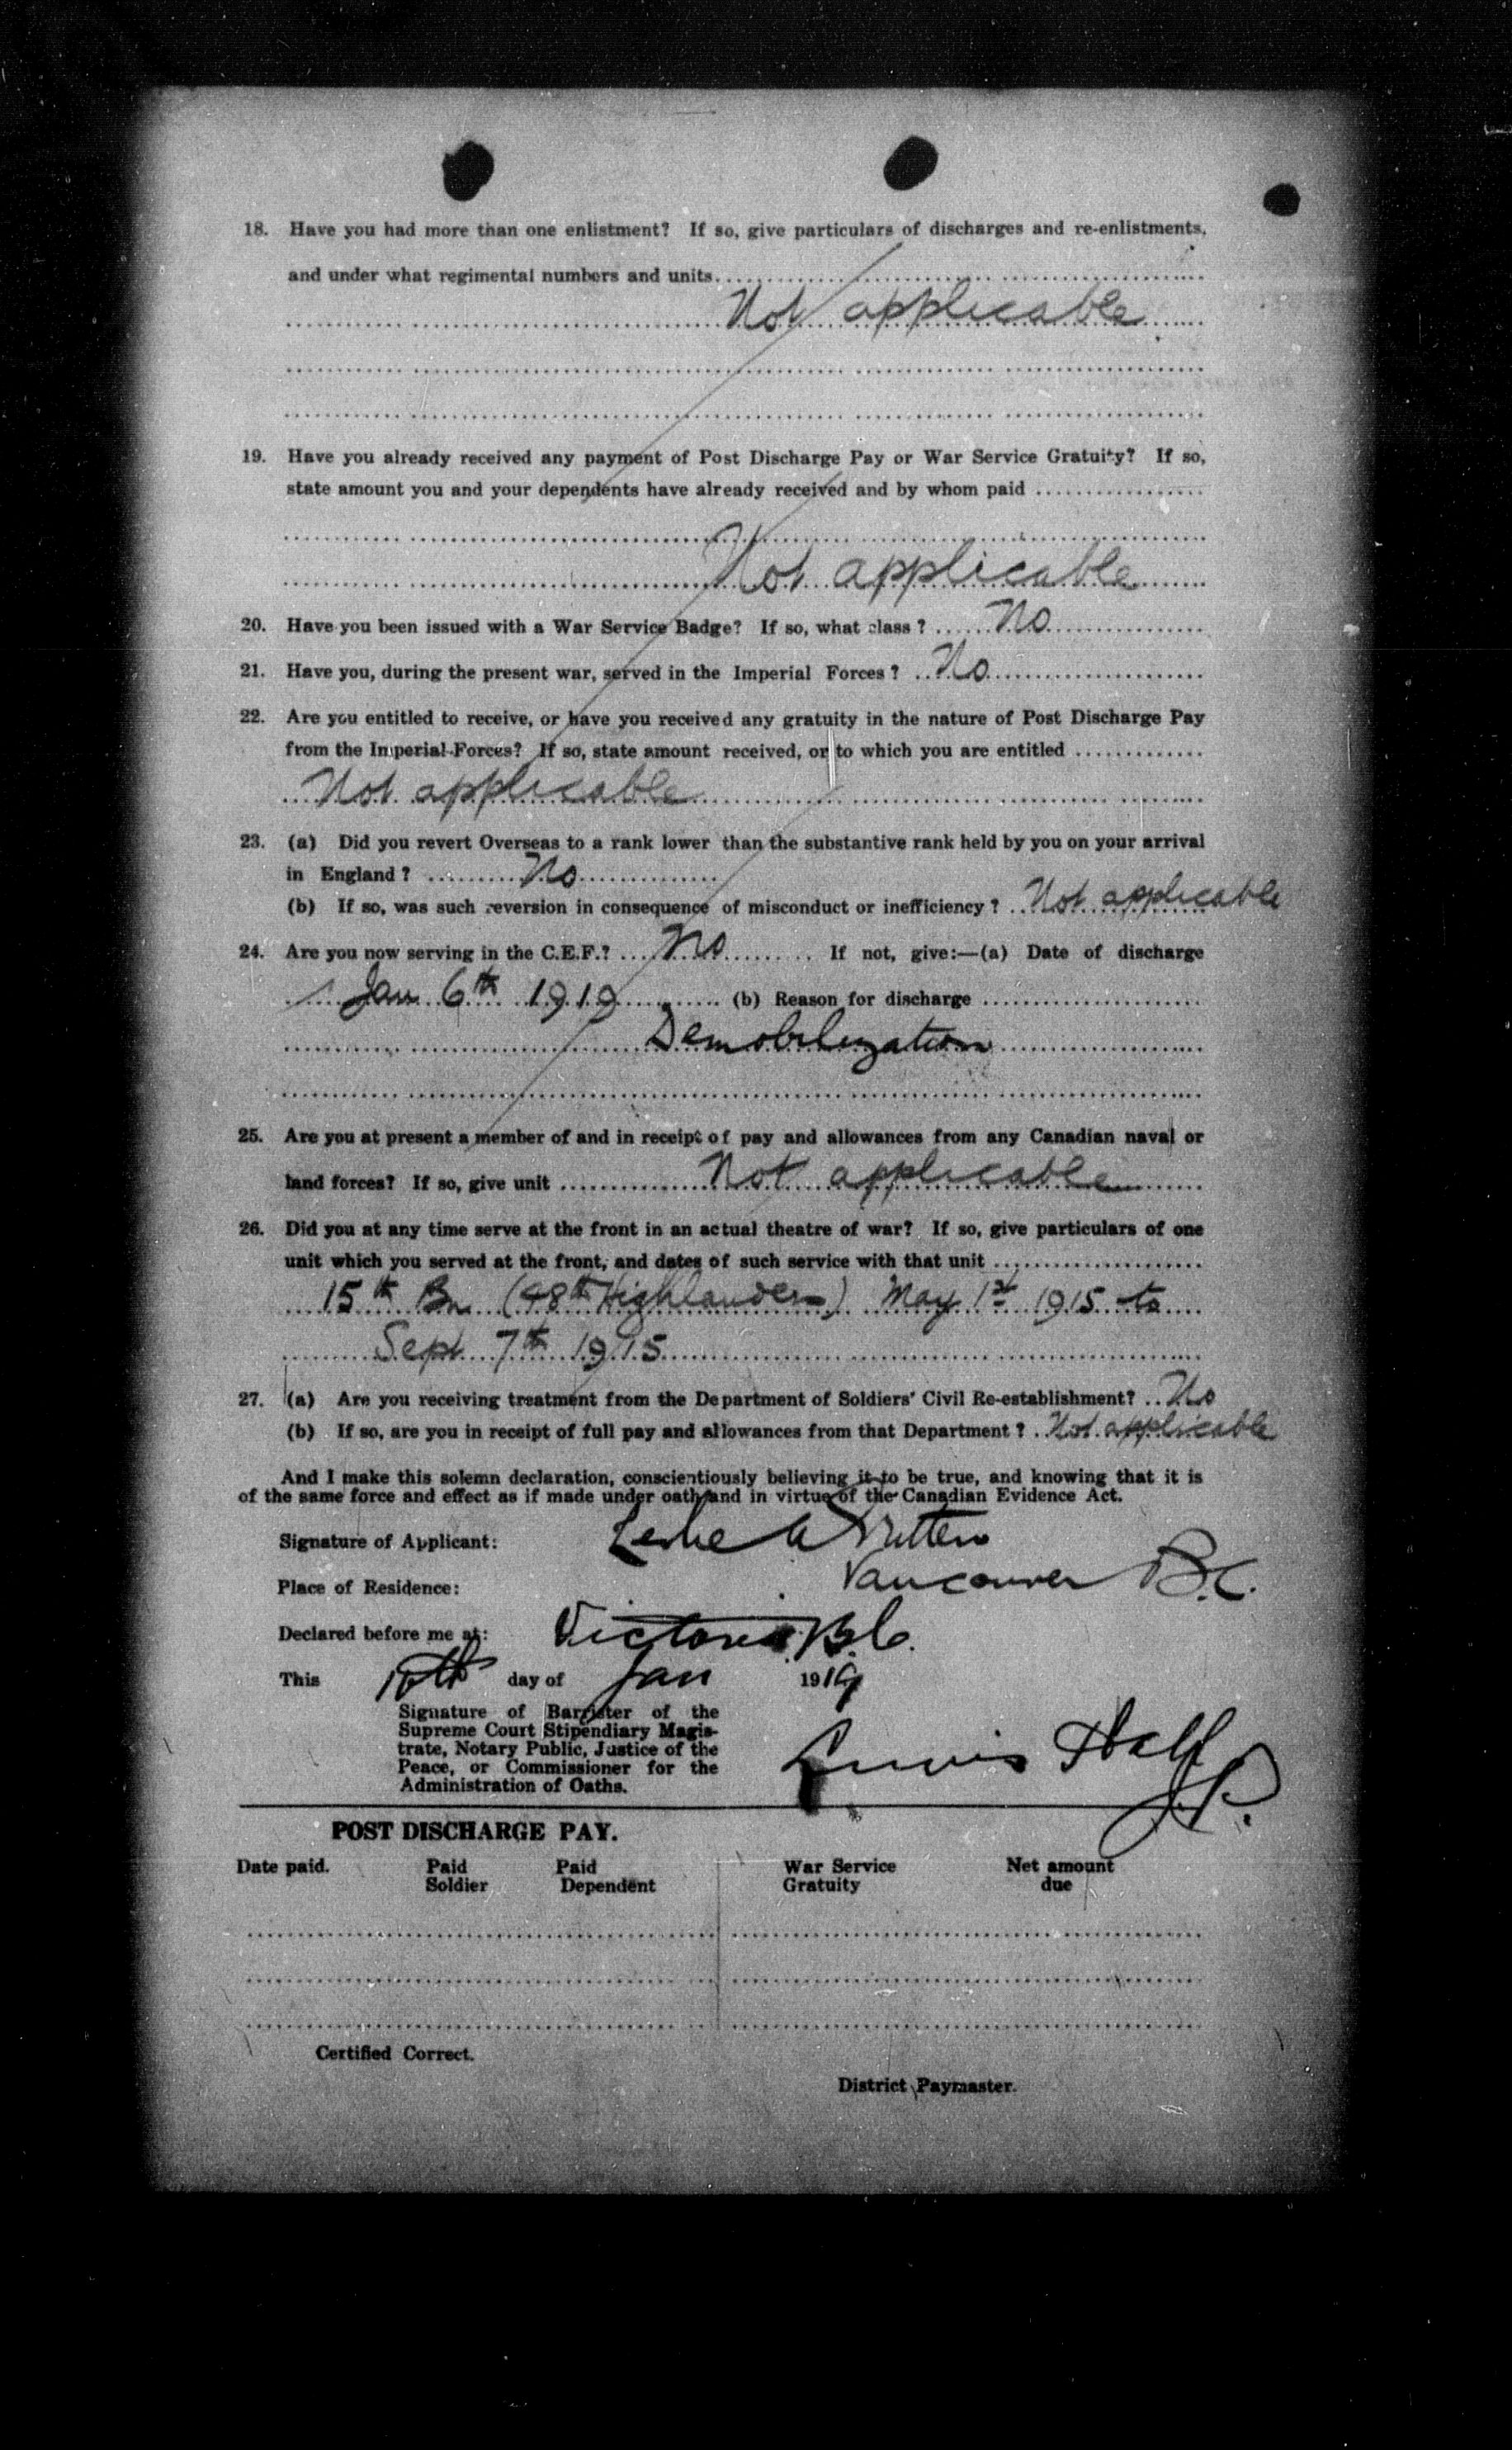 18. Have you had more than one enlistment? If so, give particulars of discharges and re-enlistments,
and under what regimental numbers and units
Not applicable
19. Have you already received any payment of Post Discharge Pay or War Service Gratuity? If so,
state amount you and your dependents have already received and by whom paid
Not applicable
20. Have you been issued with a War Service Badge? If so, what class? No
21. Have you, during the present war, served in the Imperial Forces? No
22. Are you entitled to receive, or have you received any gratuity in the nature of Post Discharge Pay
from the Imperial Forces? If so, state amount received, or to which you are entitled
Not applicable
23. (a) Did you revert Overseas to a rank lower than the substantive rank held by you on your arrival
in England? No
(b) If so, was such reversion in consequence of misconduct or inefficiency? Not applicable
24. Are you now serving in the C.E.F.? No If not, give:—(a) Date of discharge
Jan 6th 1919 (b) Reason for discharge
Demobilization
25. Are you at present a member of and in receipt of pay and allowances from any Canadian naval or
land forces? If so, give unit Not applicable
26. Did you at any time serve at the front in an actual theatre of war? If so, give particulars of one
unit which you served at the front, and dates of such service with that unit
15th Bn (48th Highlanders) May 1st 1915 to
Sept 7th 1915
27. (a) Are you receiving treatment from the Department of Soldiers' Civil Re-establishment? No
(b) If so, are you in receipt of full pay and allowances from that Department? Not applicable
And I make this solemn declaration, conscientiously believing it to be true, and knowing that it is
of the same force and effect as if made under oath and in virtue of the Canadian Evidence Act.
Signature of Applicant: Leslie
Place of Residence: Vancouver B.C.
Declared before me at: Victoria B.C.
This day of Jan 1919
Signature of Barrister of the
Supreme Court Stipendiary Magis-
trate, Notary Public, Justice of the
Peace, or Commissioner for the
Administration of Oaths.
Lewis Hall J.P.
POST DISCHARGE PAY.
Date paid. Paid Soldier Paid Dependent War Service Gratuity Net amount due
Certified Correct.
District Paymaster.